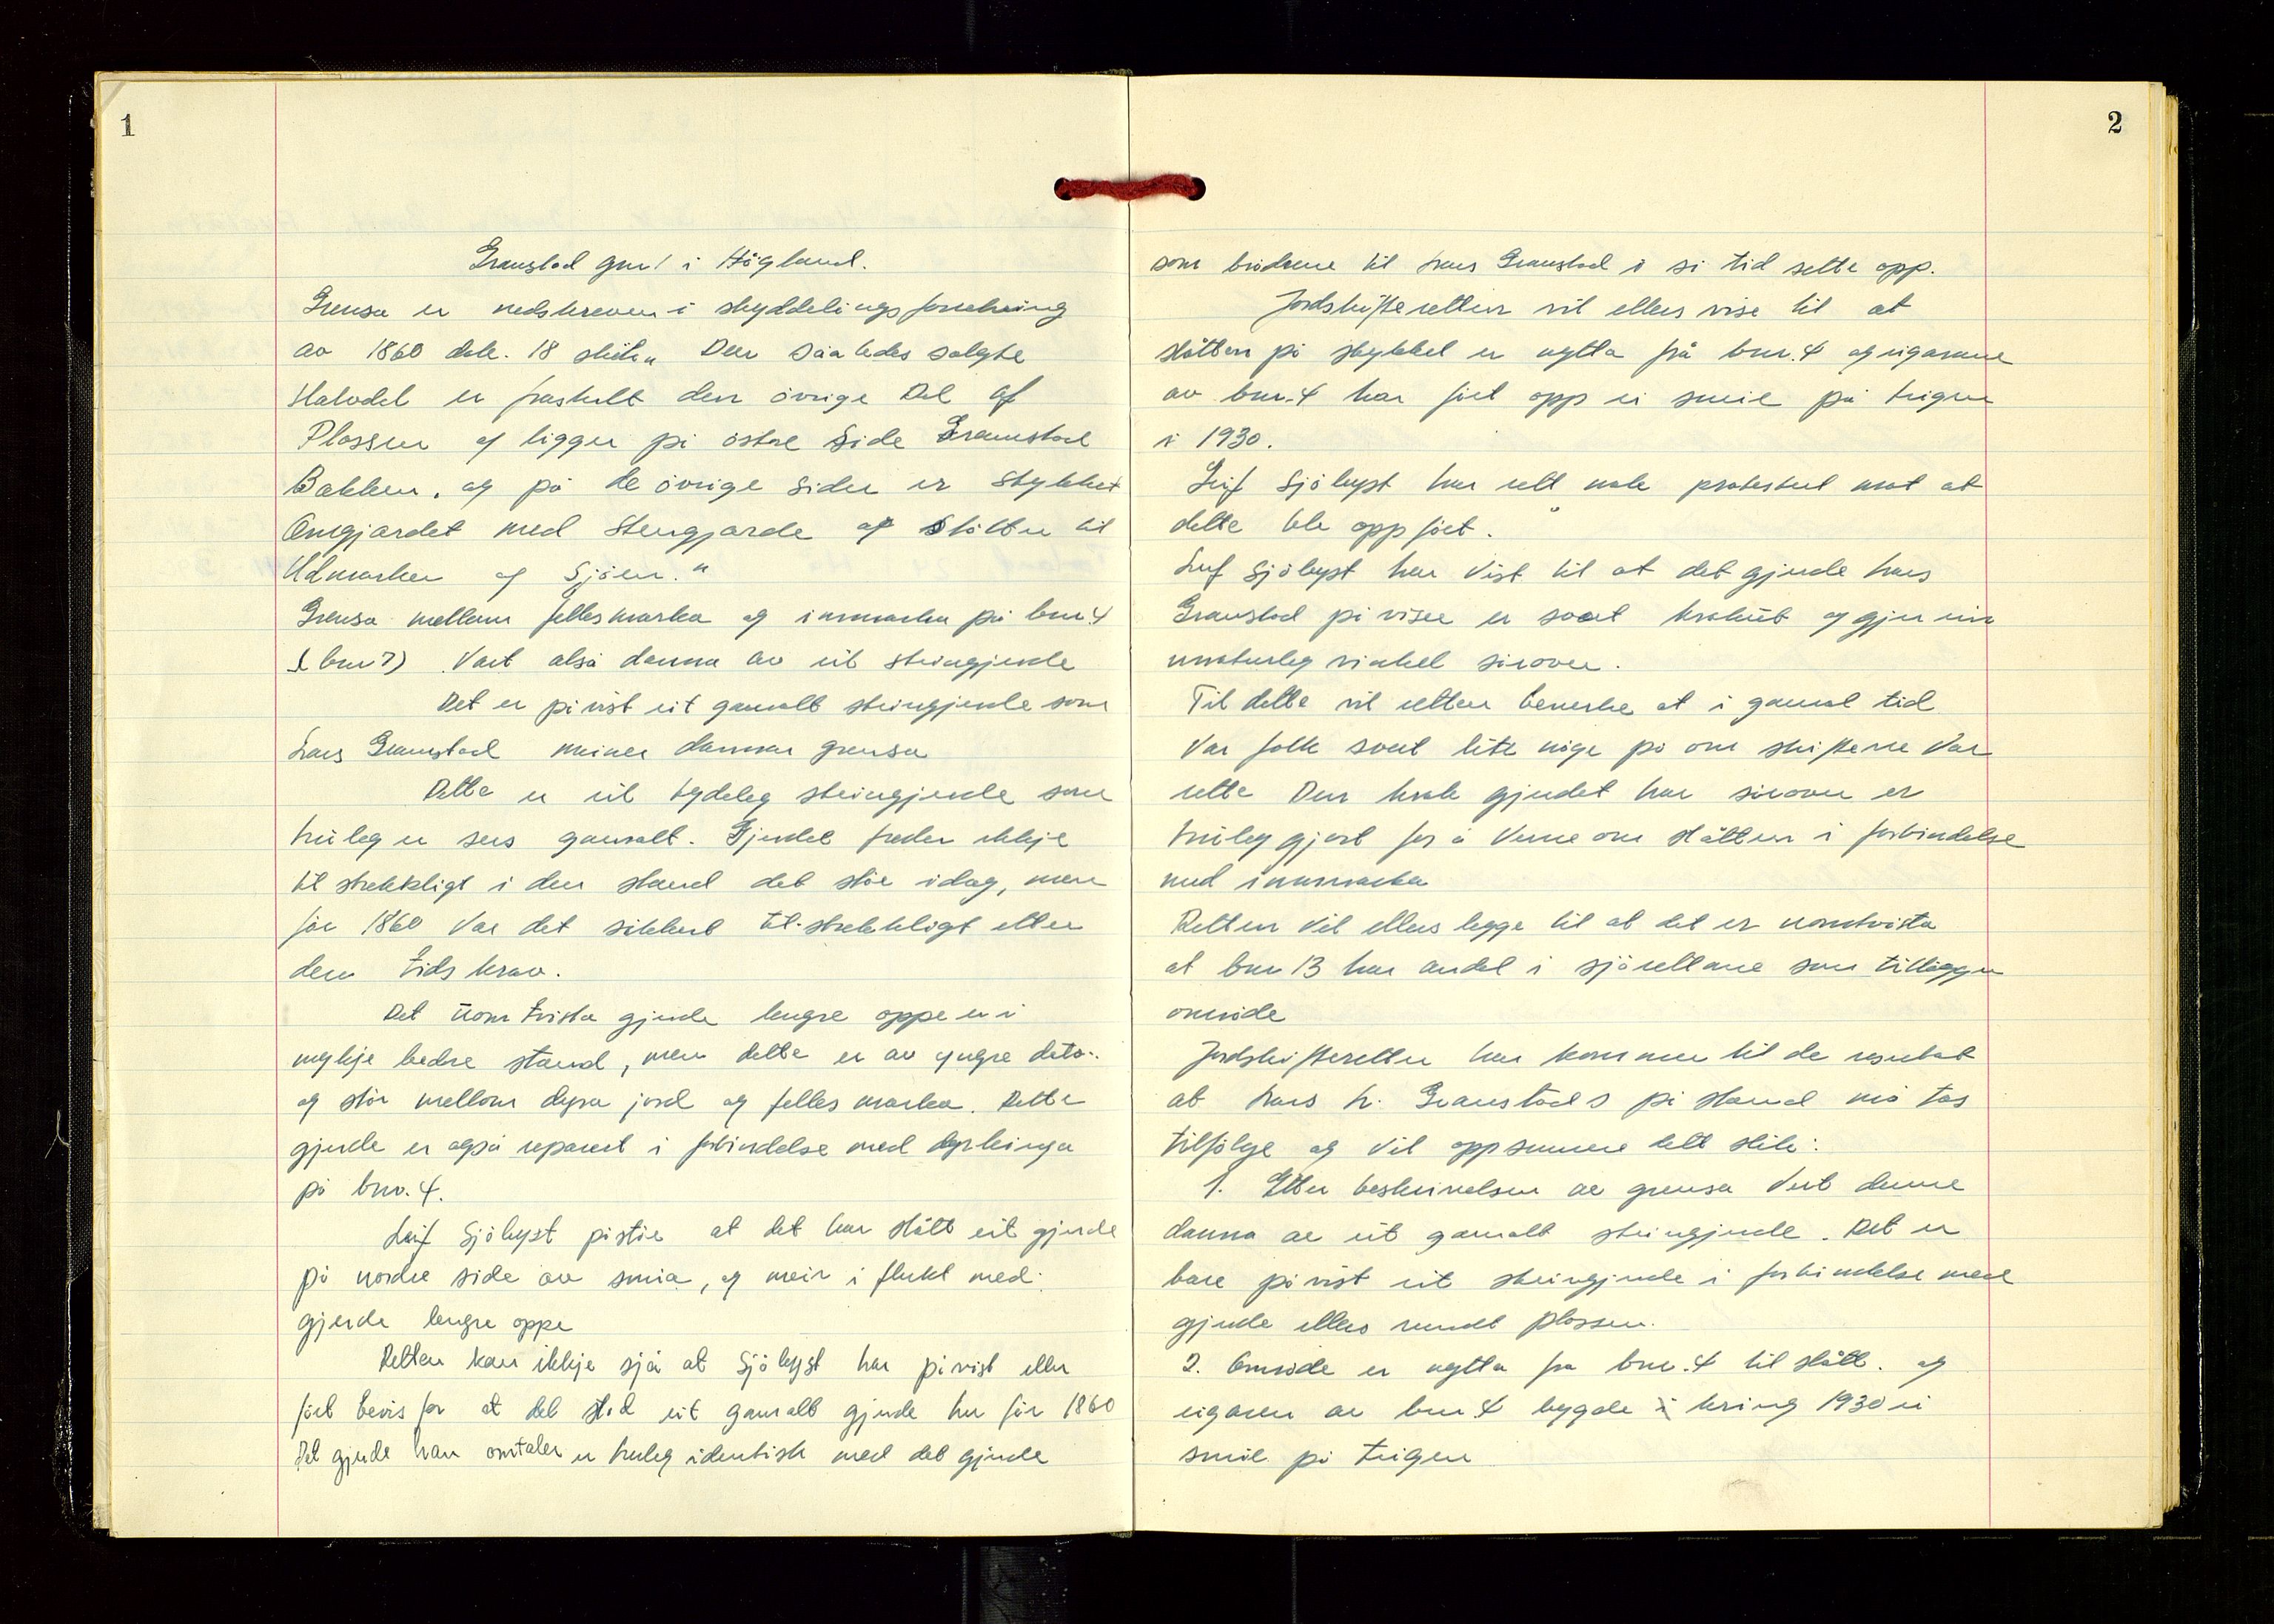 1
Granstad gnr 1 i Högland.
Grensa er nedskreven i skyddelingsforretning
av 1860 dok. 18 slik: "Den saaledes solgte
Halvdel er fraskilt den övrige Del af
Plassen og ligger på östre Side Granstad
Bakken, og på de övrige Sider er Stykket
Omgjærdet med Stengjærde af Slåtten til
Udmarken og Sjöen."
Grensa mellom fellesmarka og innmarka på bnr 4
(bnr 7) Vart altså danna av eit steingjerde
Det er påvist eit gamalt steingjerde som
Lars Granstad meiner dannar grensa
Dette er eit tydeleg steingjerde som
truleg er sers gamalt. Gjerdet freder ikkje
tilstrekkligt i den stand det står idag, men
før 1860 Var det sikkert til-strekkligt etter
den tids krav.
Det uomtvista gjerde lengre oppe er i
mykje bedre stand, men dette er av yngre dato.
og står mellom dyra jord og felles marka. Dette
gjerde er også reparert i forbindelse med dyrkinga
på bnr. 4.
Leif Sjölyst påstår at det har stått eit gjerde
på nordre side av smia, og meir i flukt med
gjerde lengre oppe
Retten kan ikkje sjå at Sjölyst har påvist eller
fört bevis for at det stod eit gamalt gjerde her för 1860
Det gjerde han omtaler er truleg identisk med det gjerde
2
som brödrene til Lars Granstad i si tid sette opp.
Jordskifteretten vil ellers vise til at
slåtten på stykket er nytta frå bnr. 4 og eigarane
av bnr. 4 har fört opp ei smie på teigen
i 1930.
Leif Sjölyst har rett nok protestert mot at
dette ble oppfört.
Leif Sjölyst har Vist til at det gjerde Lars
Granstad påviser er svært krokut og gjer ein
unaturleg vinkel sirover.
Til dette vil retten bemerke at i gamal tid
Var folk svært lite nöye på om skiftene Var
rette Den krok gjerdet har sirover er
truleg gjort for å Verne om slåtten i forbindelse
med innmarka
Retten Vil ellers legge til at det er uomtvista
at bnr 13 har andel i sjörettane som tilligger
område
Jordskifteretten har kommen til de resultat
at Lars H. Granstads påstand må tas
tilfölge og Vil oppsumere dette slik:
1. Etter beskrivelsen av grensa Vert denne
danna av eit gamalt steingjerde. Det er
bare påvist eit steingjerde i forbindelse med
gjerde ellers rundt plassen.
2. Område er nytta fra bnr. 4 til slått. og
eigaren av bnr 4 bygde i kring 1930 ei
smie på teigen